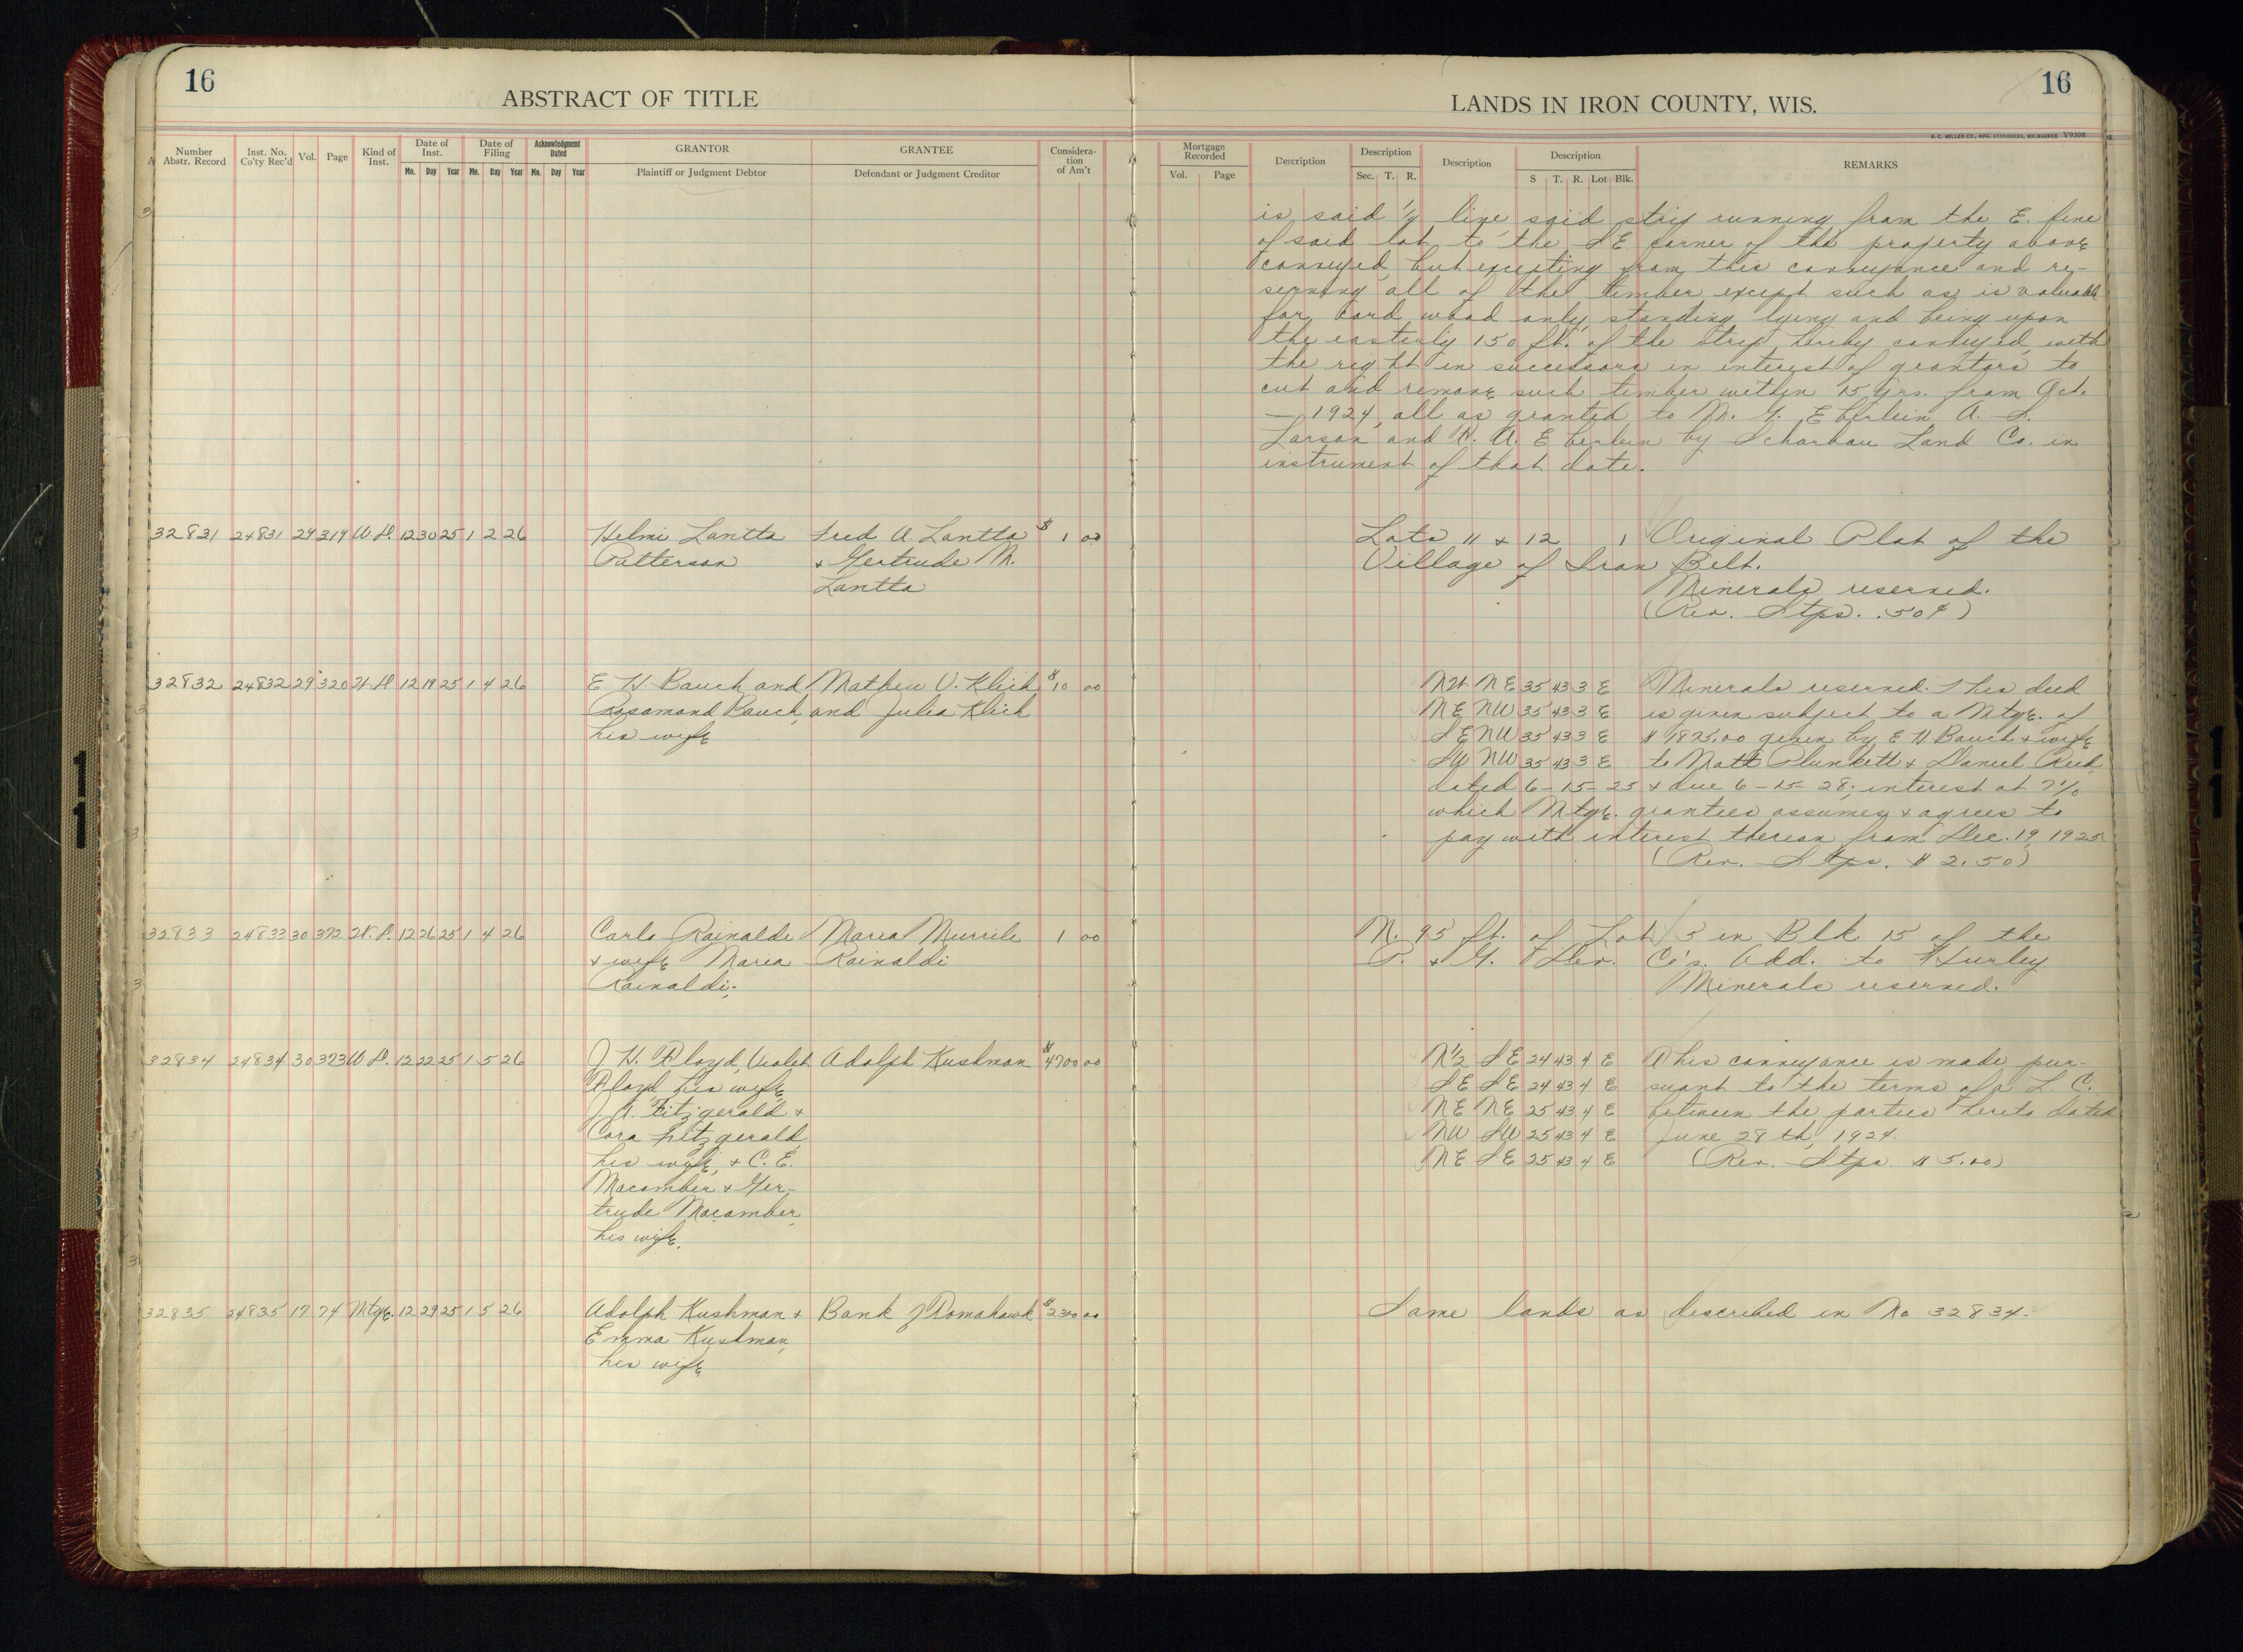 16
ABSTRACT OF TITLE
Number Abstr. Record
Inst. No. Co'ty Rec'd
Vol.
Page
Kind of Inst.
Date of Inst.
Mo. Day Year
Date of Filing
Mo. Day Year
Acknowledgment Dated
Mo. Day Year
GRANTOR
Plaintiff or Judgment Debtor
GRANTEE
Defendant or Judgment Creditor
Considera-
tion
of Am't
32831 24831 29 319 W.D. 12 30 25 1 2 26 Helmi Lantta Fred A. Lantta $ 1 00
Patterson & Gertrude M.
Lantta
32832 24832 29 320 W.D. 12 19 25 1 4 26 E H. Bauch and Mathew V. Klich $ 10 00
Rosamond Bauch, and Julia Klich
his wife
32833 24833 30 372 W.D. 12 26 25 1 4 26 Carlo Rainaldi Maria Murrile 1 00
& wife Maria Rainaldi
Rainaldi.
32834 24834 30 373 W.D. 12 22 25 1 5 26 J H. Floyd, Violet Adolph Kushman $ 4700 00
Floyd his wife,
J A. Fitzgerald &
Cora Fitzgerald,
his wife, & C. E.
Macomber & Ger-
trude Macomber,
his wife.
32835 24835 17 74 Mtge. 12 29 25 1 5 26 Adolph Kushman & Bank of Tomahawk $ 2300 00
Emma Kushman,
his wife
16
LANDS IN IRON COUNTY, WIS.
H. C. MILLER CO., MFG. STATIONERS, MILWAUKEE V9398
Mortgage Recorded
Vol. Page
Description
Description
Sec. T. R.
Description
Description
S T. R. Lot Blk.
REMARKS
is said 1/4 line, said strip running from the E. line
of said lot to the SE corner of the property above
conveyed, but excepting from this conveyance and re-
serving all of the timber except such as is valuable
for cord wood only, standing lying and being upon
the easterly 150 ft. of the strip hereby conveyed, with
the right in successors in interest of grantors to
cut and remove such timber within 15 yrs. from Oct.
— 1924, all as granted to M. G. Eberlein, A. L.
Larson and A. Eberlein by Scharbau Land Co. in
instrument of that date.
Lots 11 & 12 1 Original Plat of the
Village of Iron Belt.
Minerals reserved.
(Rev. Stps. .50¢)
NW NE 35 43 3 E Minerals reserved. This deed
NE NW 35 43 3 E is given subject to a Mtge. of
SE NW 35 43 3 E $1825.00 given by E H Bauch & wife
SW NW 35 43 3 E to Matt Plunkett & Daniel Reid,
dated 6-15-25 & due 6-15-28; interest at 7%
which Mtge. grantees assumes & agrees to
pay with interest thereon from Dec. 19, 1925
(Rev. Stps. $2.50)
N. 95 ft. of Lot 5 in Blk 15 of the
P. & G. Dev. Co's. Add. to Hurley
Minerals reserved.
N½ SE 24 43 4 E This conveyance is made pur-
SE SE 24 43 4 E suant to the terms of a L. C.
NE NE 25 43 4 E between the parties hereto dated
NW SW 25 43 4 E June 28th, 1924.
NE SE 25 43 4 E (Rev. Stps. $5.00)
Same lands as described in No 32834.